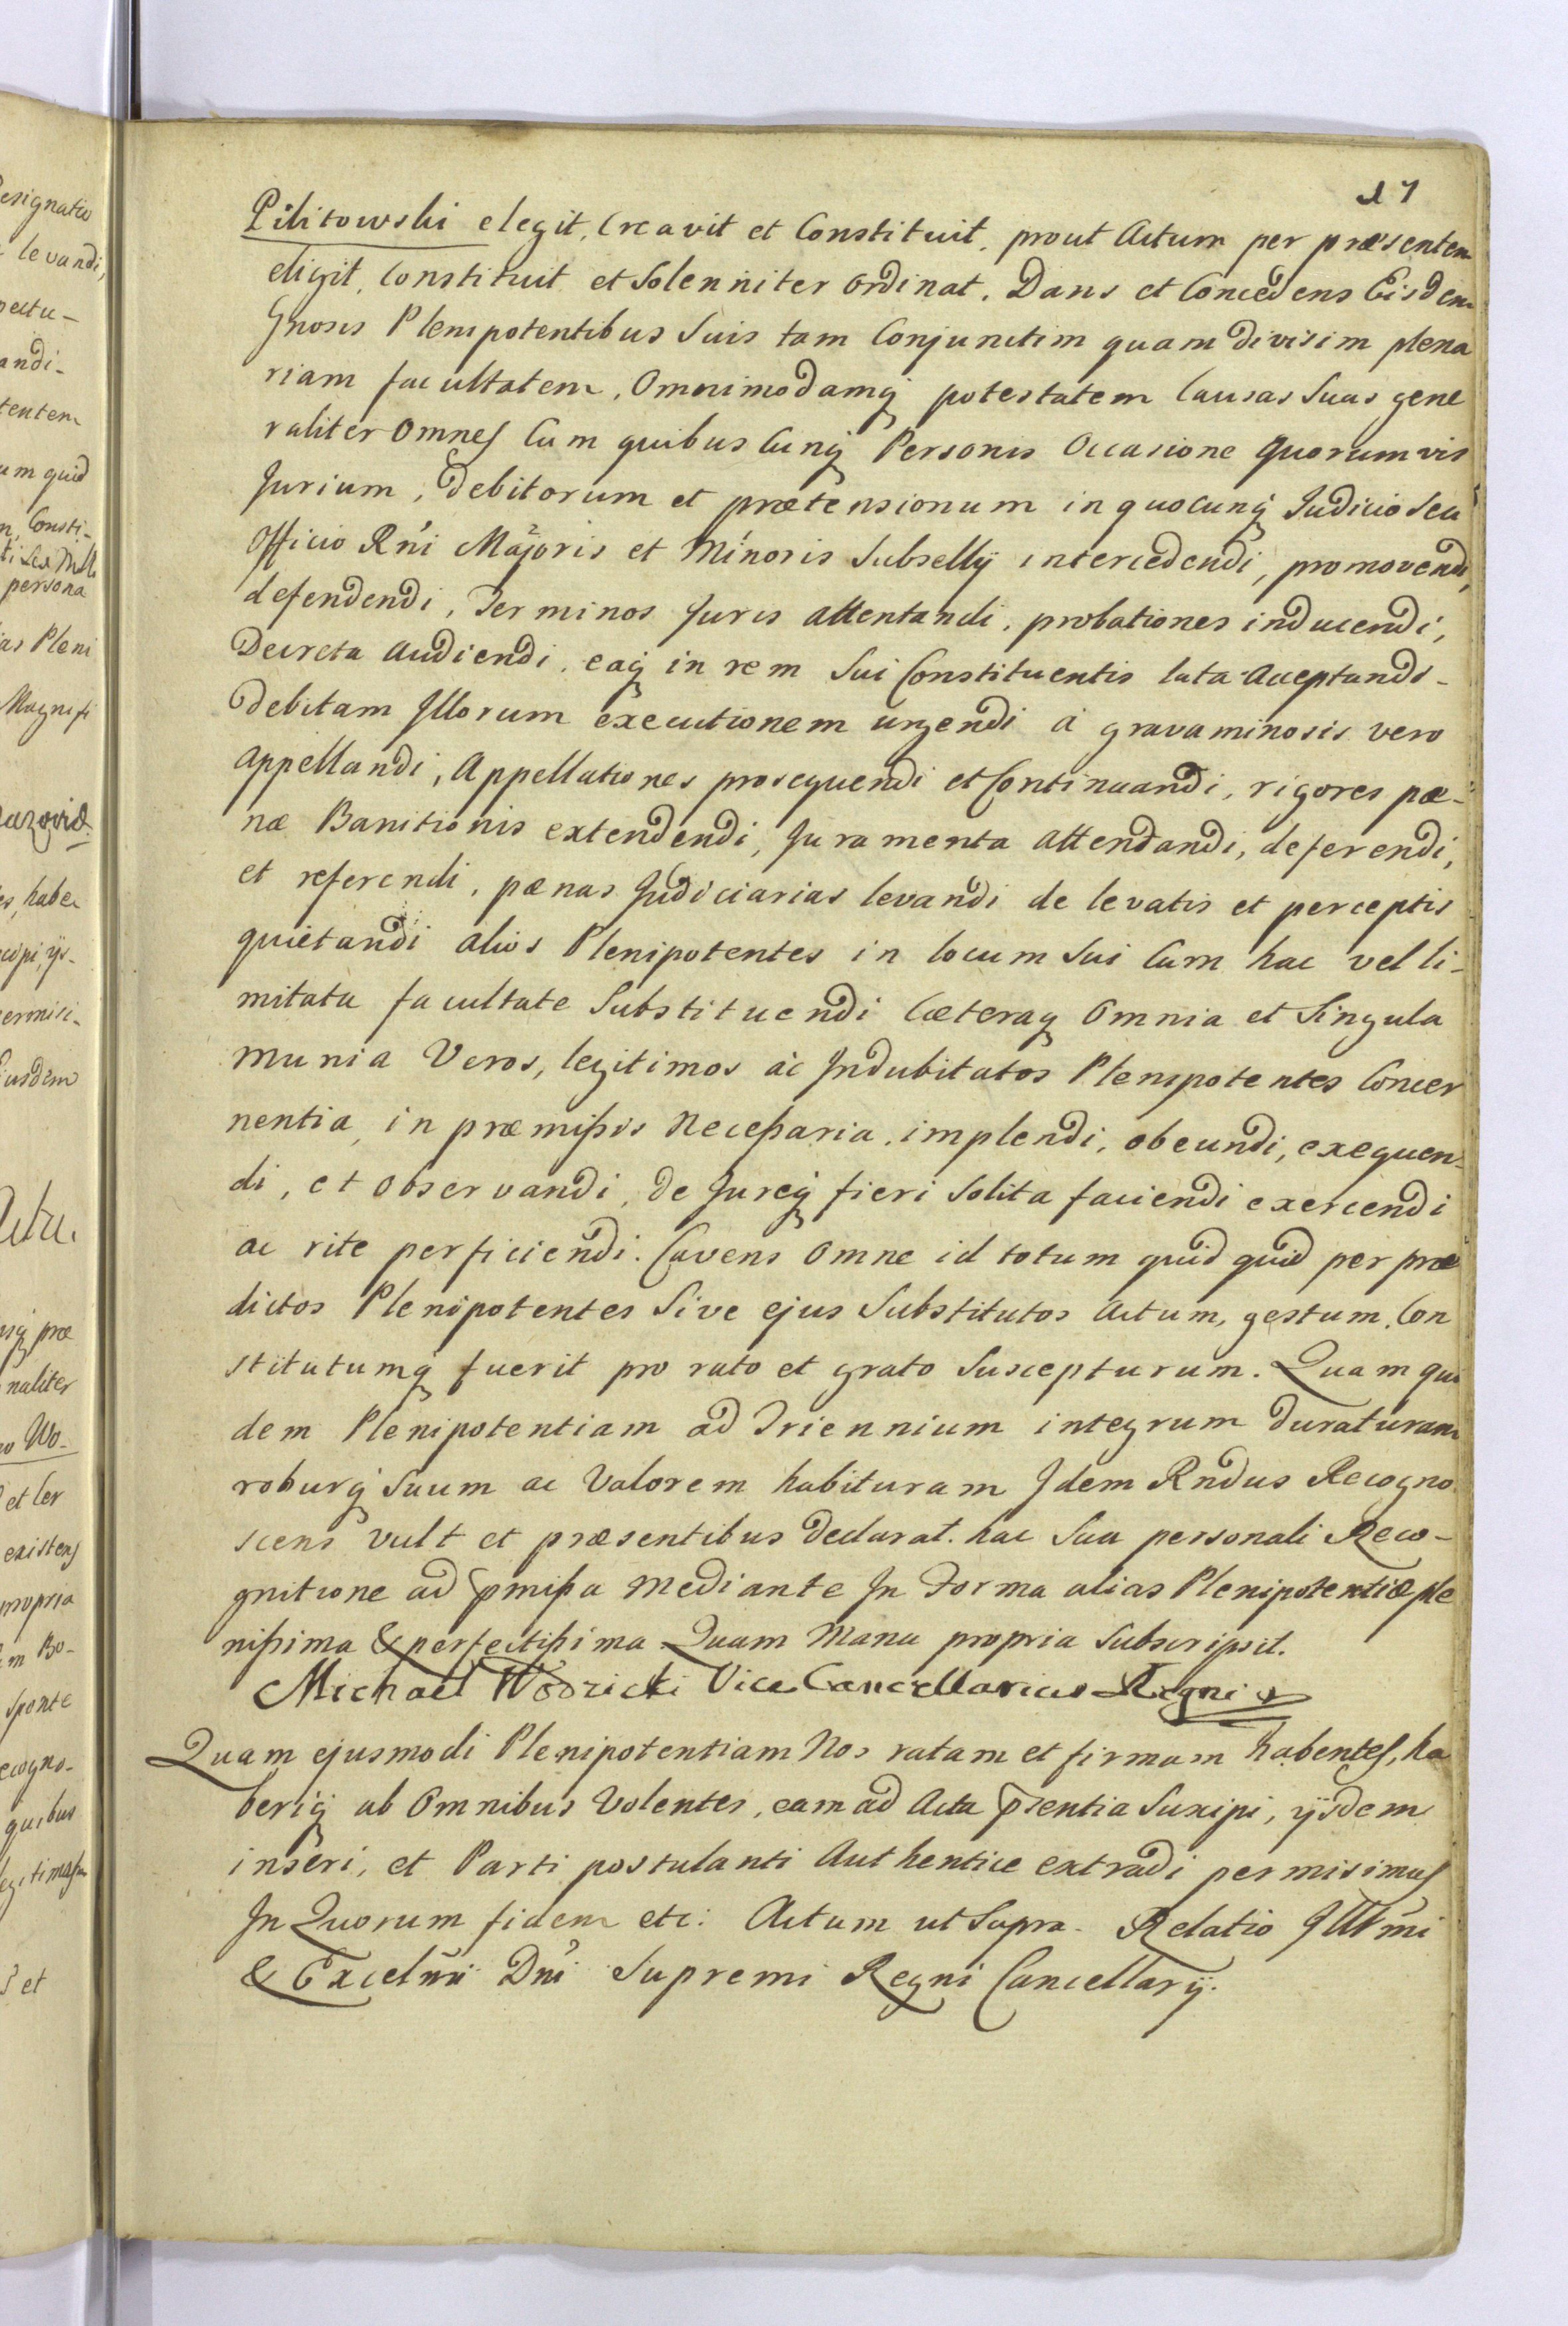 17
Pilitowski elegit, Creavit et Constituit, prout Actum per præsentem
eligit, Constituit et Solenniter Ordinat, Dans et Concedens Eisdem
Gnosis Plenipotentibus Suis tam Conjunctim quam divisim plena
riam facultatem, Omnimodamq̨ potestatem Causas Suas gene
raliter Omnes Cum quibus Cunq̨ Personis Occasione quorumvis
Jurium, Debitorum et prætensionum in quocunq̨ Judicio Seu
Officio Rńi Majoris et Minoris Subsellÿ intercedendi, promovendi,
defendendi, Terminos Juris attentandi, probationes inducendi,
Decreta Audiendi, eaq̨ in rem Sui Constituentis lata Acceptandi-
Debitam Illorum executionem urgendi à gravaminosis vero
Appellandi, Appellationes prosequendi et Continuandi, rigores pæ-
næ Banitionis extendendi, Juramenta attendandi, deferendi,
et referendi, pænas Judiciarias levandi de levatis et perceptis
quietandi alios Plenipotentes in locum Sui Cum hac vel li-
mitata facultate Substituendi Cæteraq̨ Omnia et Singula
munia Veros, legitimos ac Indubitatos Plenipotentes Concer
nentia, in præmißis Neceßaria, implendi, obeundi, exequen-
di, et Observandi, de Jureq̨ fieri Solita faciendi exercendi
ac rite perficiendi. Cavens Omne id totum quid quid per præ
dictos Plenipotentes Sive ejus Substitutos Actum, gestum, Con
stitutumq̨ fuerit pro rato et grato Suscepturum. Quam qui
dem Plenipotentiam ad Triennium integrum duraturam
roburq̨ Suum ac Valorem habituram Idem Rndus Recogno
scens vult et præsentibus declarat. hac Sua personali Reco-
gnitione ad pmißa mediante In Forma alias Plenipotentiæ ple
nißima & perfectißima Quam Manu propria Subscripsit.
Michael Wodzicki Vice Cancellarius Regni
Quam ejusmodi Plenipotentiam Nos ratam et firmam habentes, ha
beriq̨ ab Omnibus Volentes, eam ad Acta p̄sentia Suscipi, ÿsdem
inseri, et Parti postulanti Authentice extradi permisimus
In Quorum fidem etc: Actum ut Supra. Relatio Illm̃i
& Excelm̃i Dńi Supremi Regni Cancellarÿ.